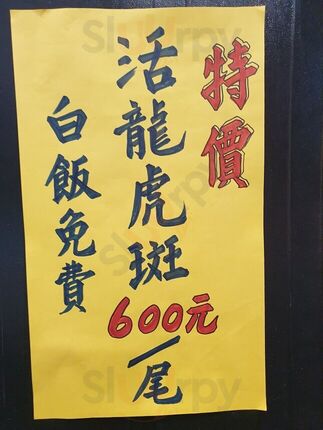 特價
活龍虎斑
600元/尾
白飯免費